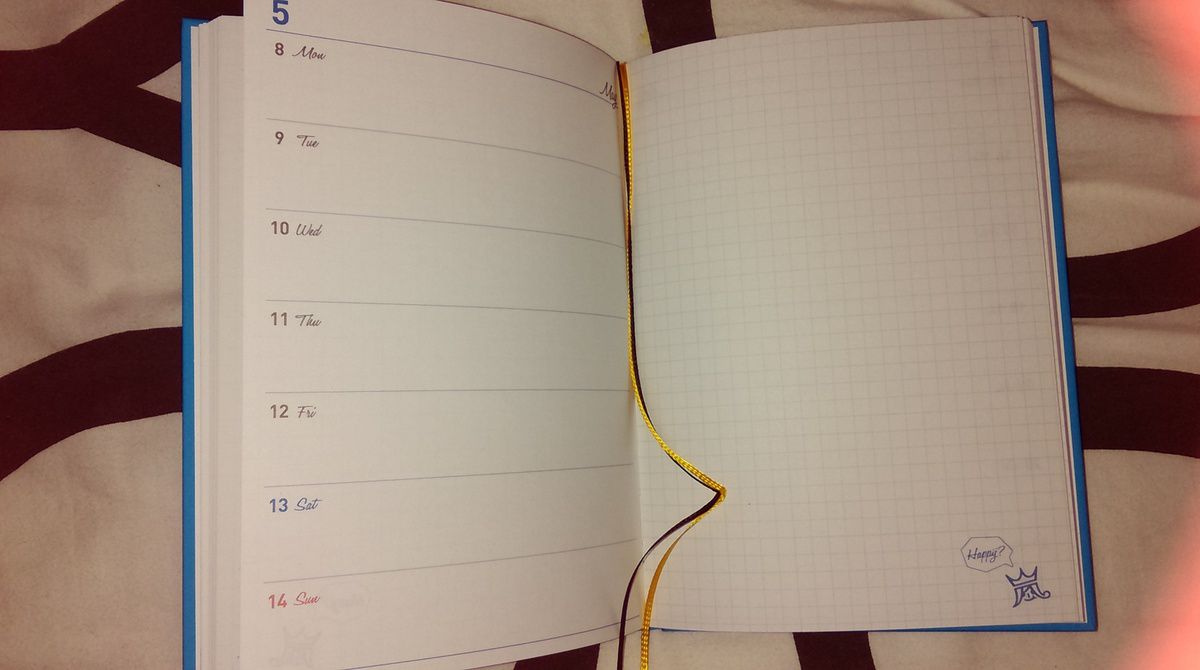 5
May
8 Mon
9 Tue
10 Wed
11 Thu
12 Fri
13 Sat
14 Sun
Happy?